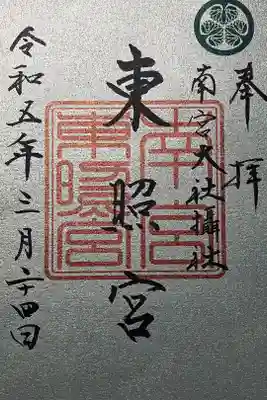 奉拝
南宮大社攝社
東照宮
令和五年三月二十四日
南宮
東照宮